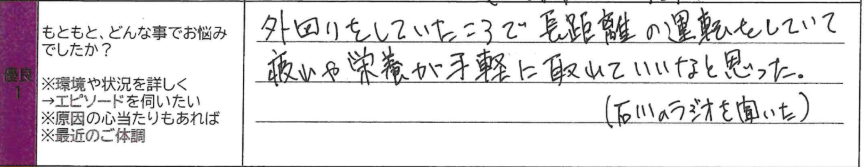 優良
1
もともと、どんな事でお悩み
でしたか？
※環境や状況を詳しく
→エピソードを伺いたい
※原因の心当たりもあれば
※最近のご体調
外回りをしていたころで長距離の運転をしていて
疲れや栄養が手軽に取れていいなと思った。
(石川のラジオを聞いた)